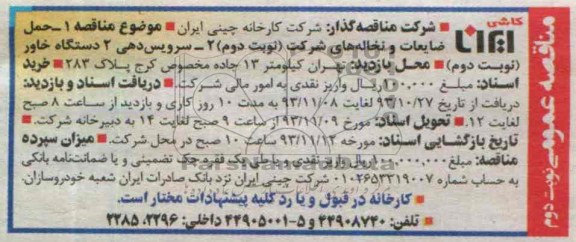 مناقصه عمومی نوبت دوم
کاشی ایرانا
■ شرکت مناقصه‌گذار: شرکت کارخانه چینی ایران ■ موضوع مناقصه ۱ـ حمل
ضایعات و نخاله‌های شرکت (نوبت دوم) ۲ـ سرویس‌دهی ۲ دستگاه خاور
(نوبت دوم) ■ محل بازدید: تهران کیلومتر ۱۳ جاده مخصوص کرج پلاک ۲۸۳ ■ خرید
اسناد: مبلغ ۱۰۰،۰۰۰ ریال واریز نقدی به امور مالی شرکت ■ دریافت اسناد و بازدید:
دریافت از تاریخ ۹۳/۱۰/۲۷ لغایت ۹۳/۱۱/۰۸ به مدت ۱۰ روز کاری و بازدید از ساعت ۸ صبح
لغایت ۱۲. ■ تحویل اسناد: مورخ ۹۳/۱۱/۰۹ از ساعت ۹ صبح لغایت ۱۴ به دبیرخانه شرکت. ■
تاریخ بازگشایی اسناد: مورخه ۹۳/۱۱/۱۲ ساعت ۱۰ صبح در محل شرکت. ■ میزان سپرده
مناقصه: مبلغ ریال واریز نقدی و یا طی یک فقره چک تضمینی و یا ضمانتنامه بانکی
به حساب شماره ۰۱۰۲۶۵۳۳۱۹۰۰۷ شرکت چینی ایران نزد بانک صادرات ایران شعبه خودروسازان.
■ کارخانه در قبول و یا رد کلیه پیشنهادات مختار است.
■ تلفن: ۴۴۹۰۸۷۴۰ و ۵-۴۴۹۰۵۰۰۱ داخلی: ۲۲۹۶، ۲۲۸۵